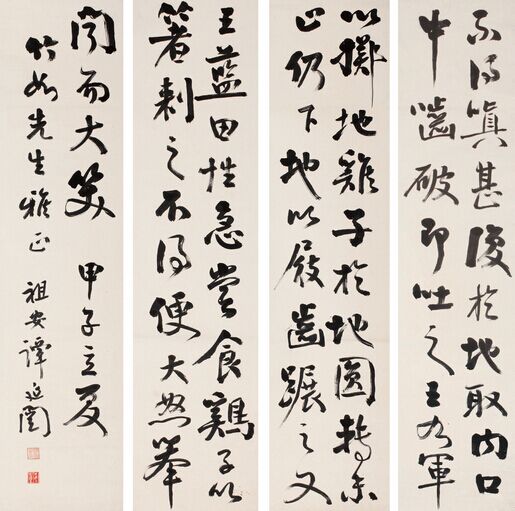 王藍田性急嘗食鷄子以
箸刺之不得便大怒舉
以擲地雞子於地圓轉未
止仍下地以屐齒蹍之又
不得瞋甚復於地取內口
中嚙破即吐之王右軍
聞而大笑 甲子立夏
竹如先生雅正 祖安譚延闓